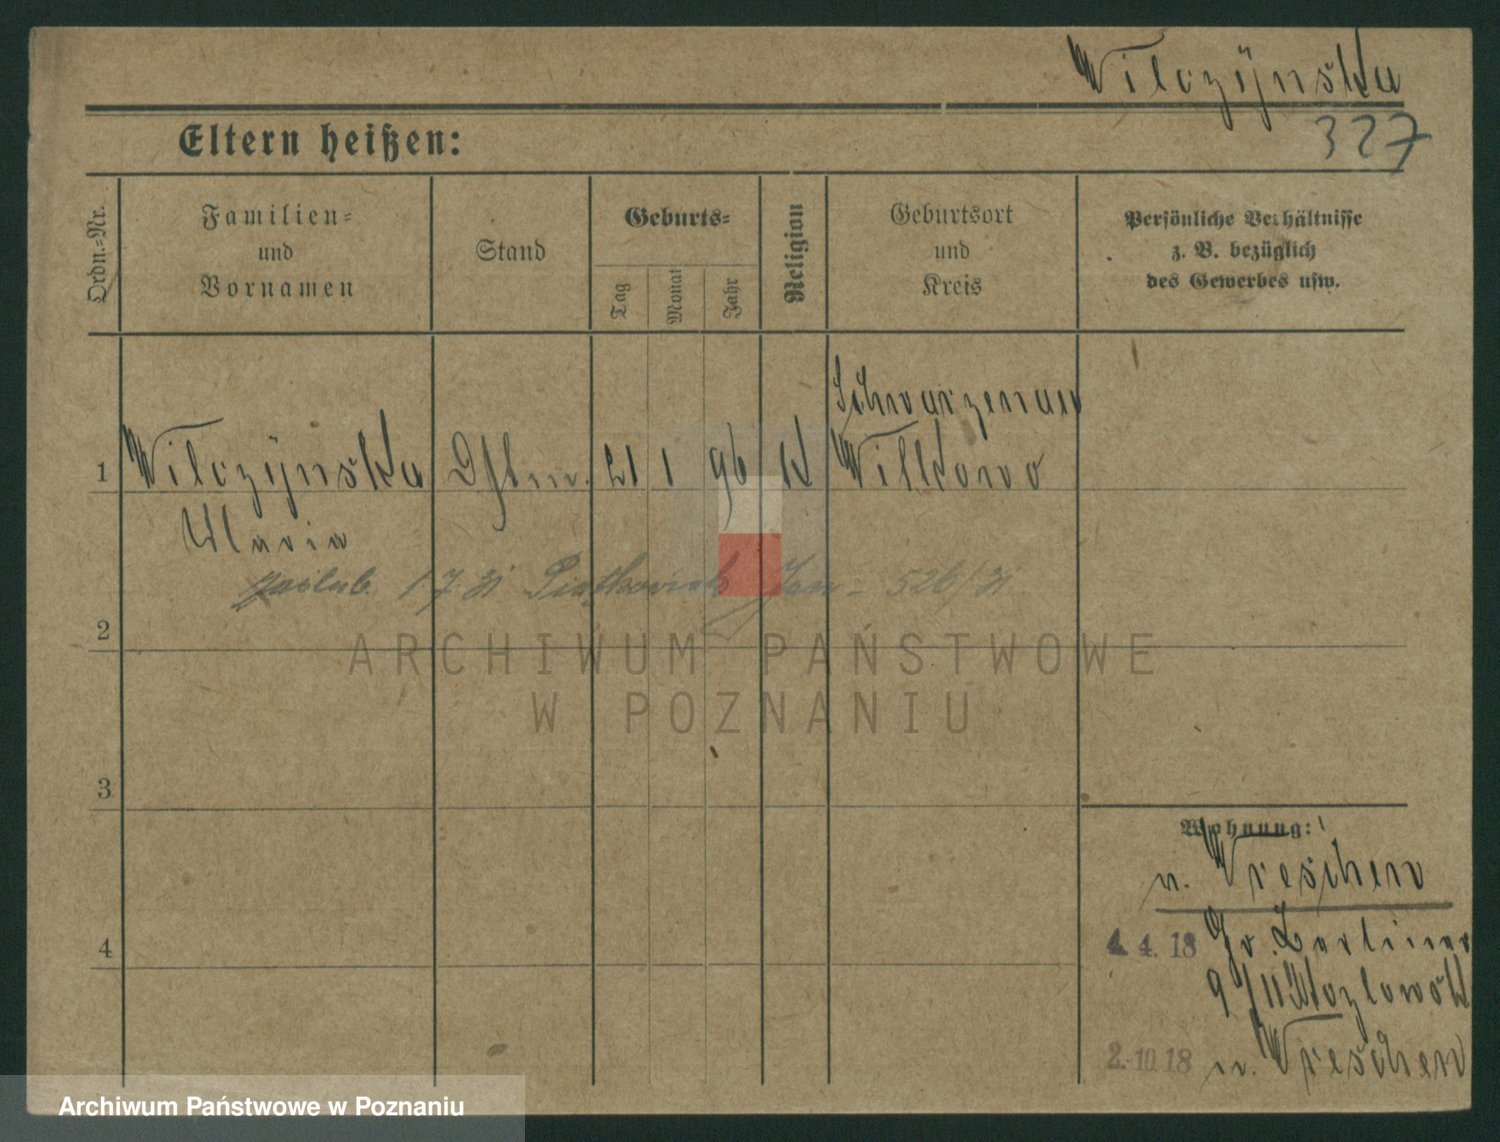 Wilczÿnska
327
Eltern heißen:
Ordn.=Nr.
Familien=
und
Vornamen
Stand
Geburts=
Tag
Monat
Jahr
Religion
Geburtsort
und
Kreis
Persönliche Verhältnisse
z. B. bezüglich
des Gewerbes usw.
Schwarzenau
1 Wilczÿnska 21 1 96 K Wittkowo
Maria
zaślub. 1 7 31 Piątkowiak Jan - 526/31
2
ARCHIWUM PAŃSTWOWE
W POZNANIU
3
Wohnung:
n. Wreschen
4
4. 4. 18 Gr. Berliner
9
2. 10. 18 n. Wreschen
Archiwum Państwowe w Poznaniu